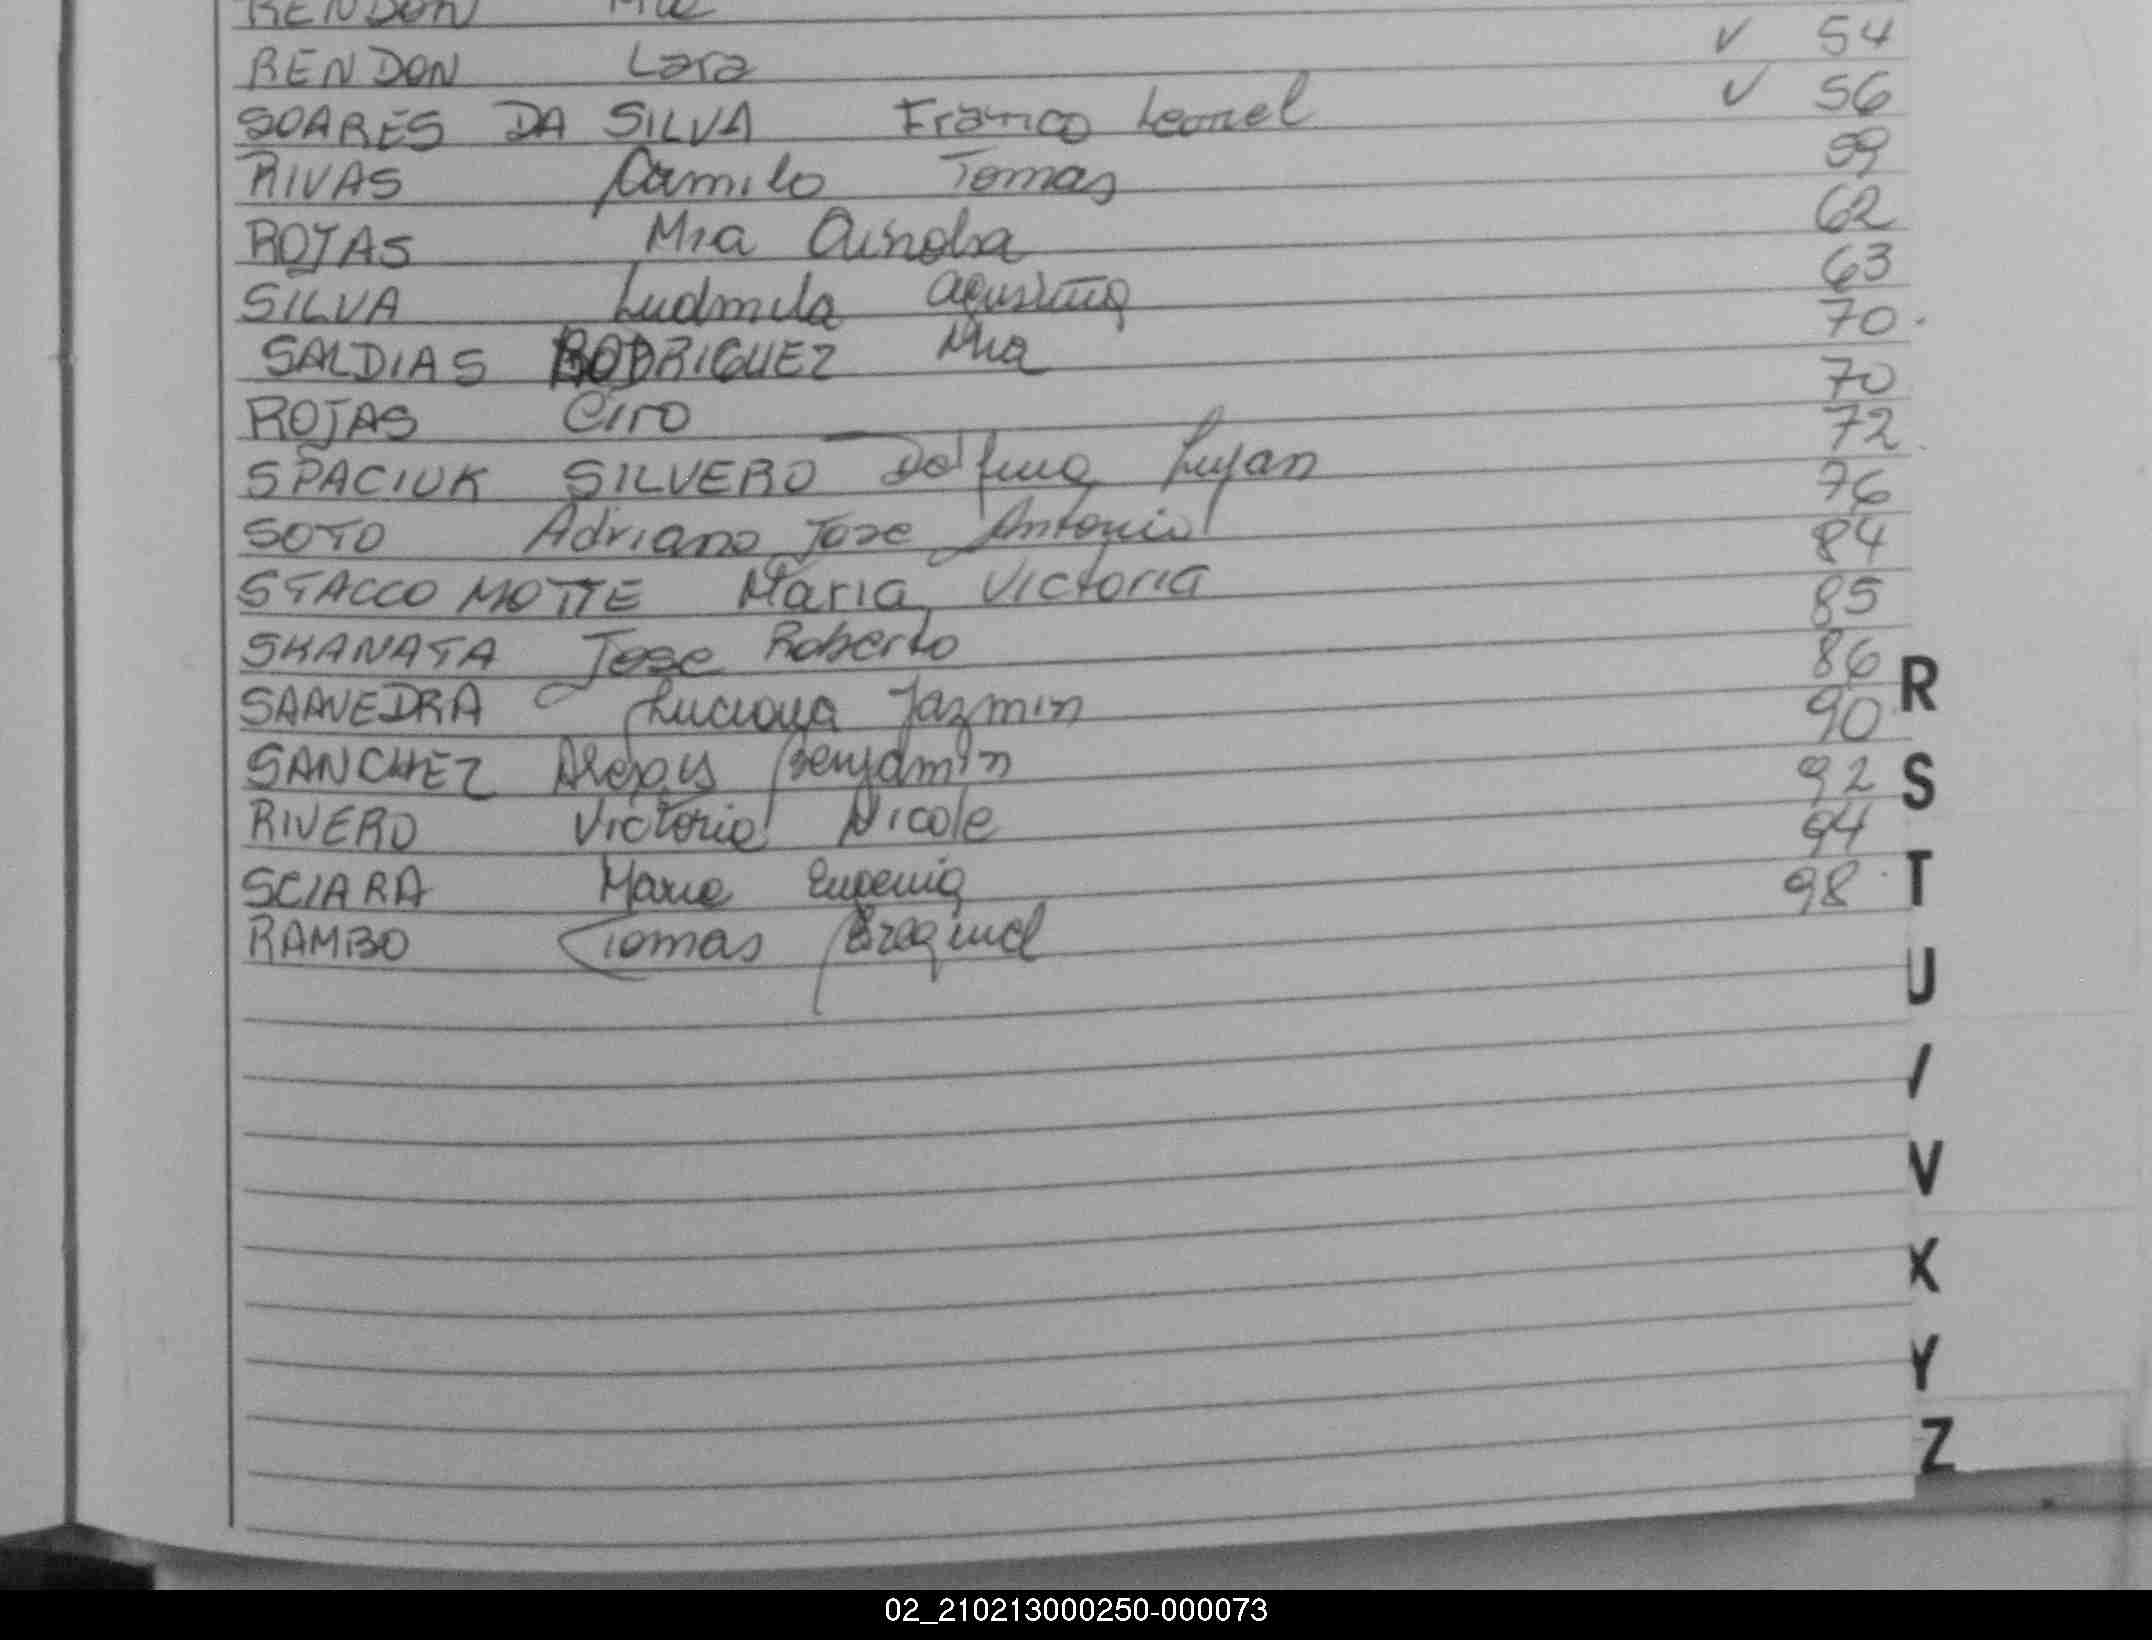 RENDON Mia
RENDON Lara ✓ 54
SOARES DA SILVA Franco Leonel ✓ 56
RIVAS Camilo Tomas 59
ROJAS Mia 62
SILVA Ludmila Agustina 63
SALDIAS RODRIGUEZ Mia 70
ROJAS Ciro 70
SPACIUK SILVERO Delfina Lujan 72
SOTO Adriano Jose Antonio 76
STACCO MOTTE Maria Victoria 84
SKANATA Jose Roberto 85
SAAVEDRA Luciana Jazmin 86
SANCHEZ Alexis Benjamin 90
RIVERO Victoria Nicole 92
SCIARA Maria Eugenia 94
RAMBO Tomas Ezequiel 98
R
S
T
U
V
X
Y
Z
02_210213000250-000073